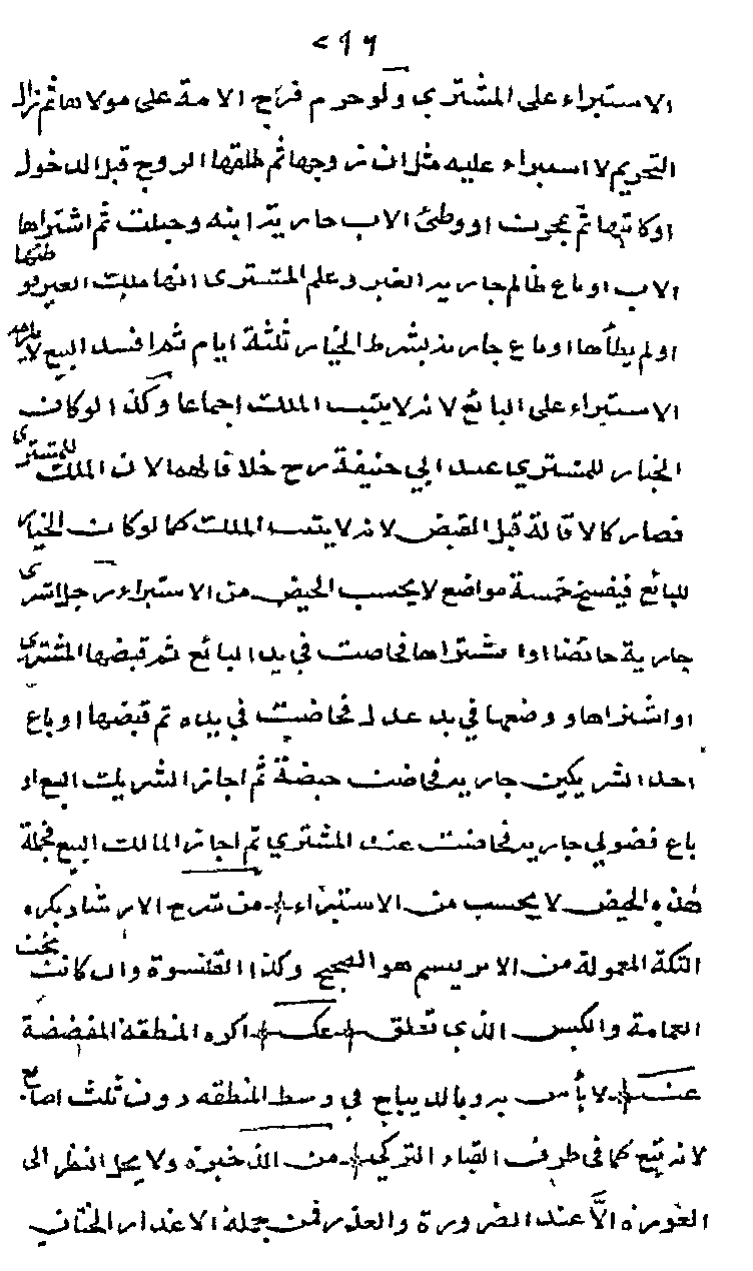 ٢٩٦
الاستبراء على المشتري ولو حرم فرج الامة على مولاها ثم زال
التحريم لا استبراء عليه مثل ان زوجها ثم طلقها الزوج قبل الدخول
او كاتبها ثم عجزت او وطئ الاب جارية ابنه وحبلت ثم اشتراها
الاب او باع ظالم جارية الغير وعلم المشترى انها ملك الغير فوطئها
او لم يطأها او باع جارية بشرط الخيار ثلثة ايام ثم افسد البيع لا يلزمه
الاستبراء على البائع لانه لا يثبت الملك اجماعا وكذا لو كان
الخيار للمشتري عند ابي حنيفة رح خلافا لهما لان الملك للمشترى
فصار كالاقالة قبل القبض لانه لا يثبت الملك كما لو كان الخيار
للبائع فيفسخ خمسة مواضع لا يحسب الحيض من الاستبراء رجل اشترى
جارية حائضا او اشتراها فحاضت في يد البائع ثم قبضها المشترى
او اشتراها ووضعها في يد عدل فحاضت في يده ثم قبضها او باع
احد الشريكين جارية فحاضت حيضة ثم اجاز الشريك البيع او
باع فضولي جارية فحاضت عند المشتري ثم اجاز المالك البيع فجملة
هذه الحيض لا يحسب من الاستبراء من شرح الارشاد يكره
التكة المعمولة من الابريسم هو الصحيح وكذا القلنسوة وان كانت تحت
العمامة والكيس الذي تعلق عك اكره المنطقة المفضضة
عك لا بأس به وبالديباج في وسط المنطقه دون ثلث اصابع
لانه تبع كما في طرف القباء التركي من الذخيرة ولا يحل النظر الى
العورة الا عند الضرورة والعذر فمن جملة الاعذار الختان